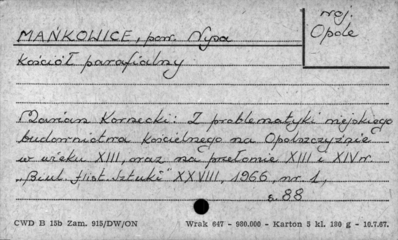 MAŃKOWICE, pow. Nysa
woj.
Opole
Kościół parafialny
Marian Kornecki: Z problematyki miejskiego
budownictwa kościelnego na Opolszczyźnie
w wieku XIII, oraz na przełomie XIII i XIV w.
"Biul. Hist. Sztuki" XXVIII, 1966, nr. 1,
s. 88
CWD B 15b Zam. 915/DW/ON Wrak 647 - 980,000 - Karton 5 kl. 180 g - 10.7.67.